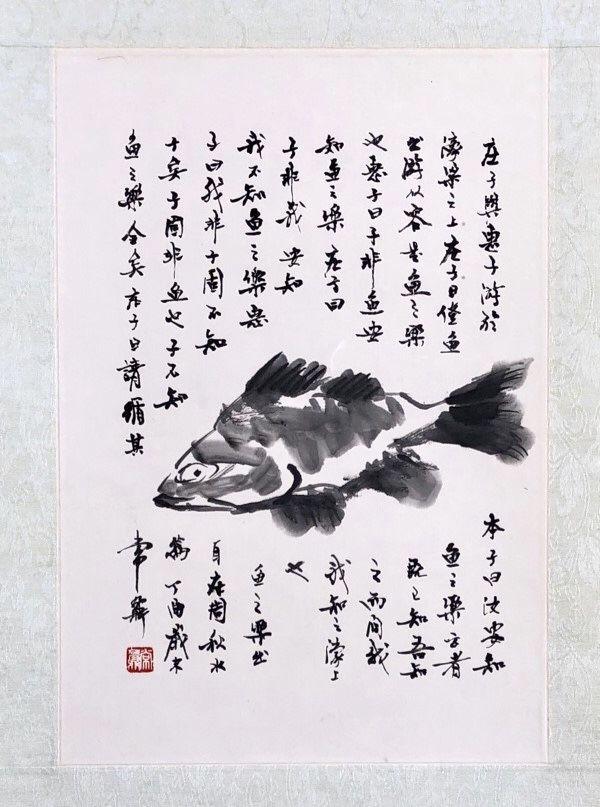 庄子與惠子游於
濠梁之上庄子曰儵鱼
出游从容是鱼之樂
也惠子曰子非鱼安
知鱼之樂庄子曰
子非我安知
我不知鱼之樂惠
子曰我非子固不知
子矣子固非鱼也子不知
鱼之樂全矣庄子曰請循其
本子曰汝安知
鱼之樂云者
既已知吾知
之而问我
我知之濠上
也
鱼之樂出
自庄周秋水
篇丁酉歲末
常